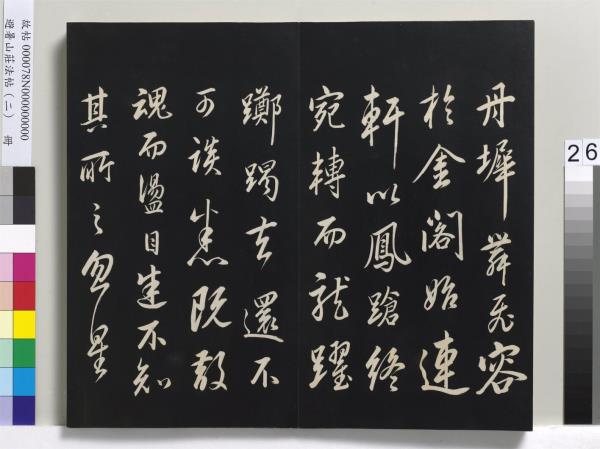 丹墀舞飛容
於金閣始連
軒以鳳蹌終
宛轉而龍躍
躑躅去還不
可談悉既散
魂而盪目迷不知
其所之忽星
故帖 000078N000000000
避暑山莊法帖(二) 冊
26